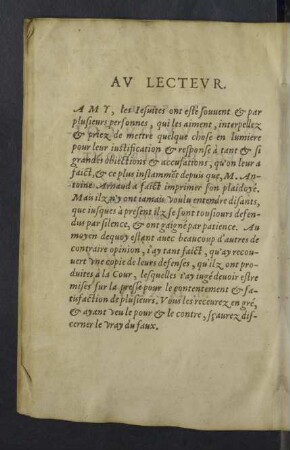 AV LECTEVR.
AMY, les Iesuites ont esté souuent & par
plusieurs personnes, qui les aiment, interpellez
& priez de mettre quelque chose en lumiere
pour leur iustification & response à tant & si
grandes obiections & accusations, qu'on leur a
faict, & ce plus instammēt depuis que, M. An-
toine Arnaud a faict imprimer son plaidoyé.
Mais ilz n'y ont iamais voulu entendre disants,
que iusques à present ilz se sont tousiours defen-
dus par silence, & ont gaigné par patience. Au
moyen dequoy estant auec beaucoup d'autres de
contraire opinion, i'ay tant faict, qu'ay recou-
uert vne copie de leurs defenses, qu'ilz ont pro-
duites à la Cour, lesquelles i'ay iugé deuoir estre
mises sur la presse pour le contentement & sa-
tisfaction de plusieurs. Vous les receurez en gré,
& ayant veu le pour & le contre, sçaurez dis-
cerner le vray du faux.